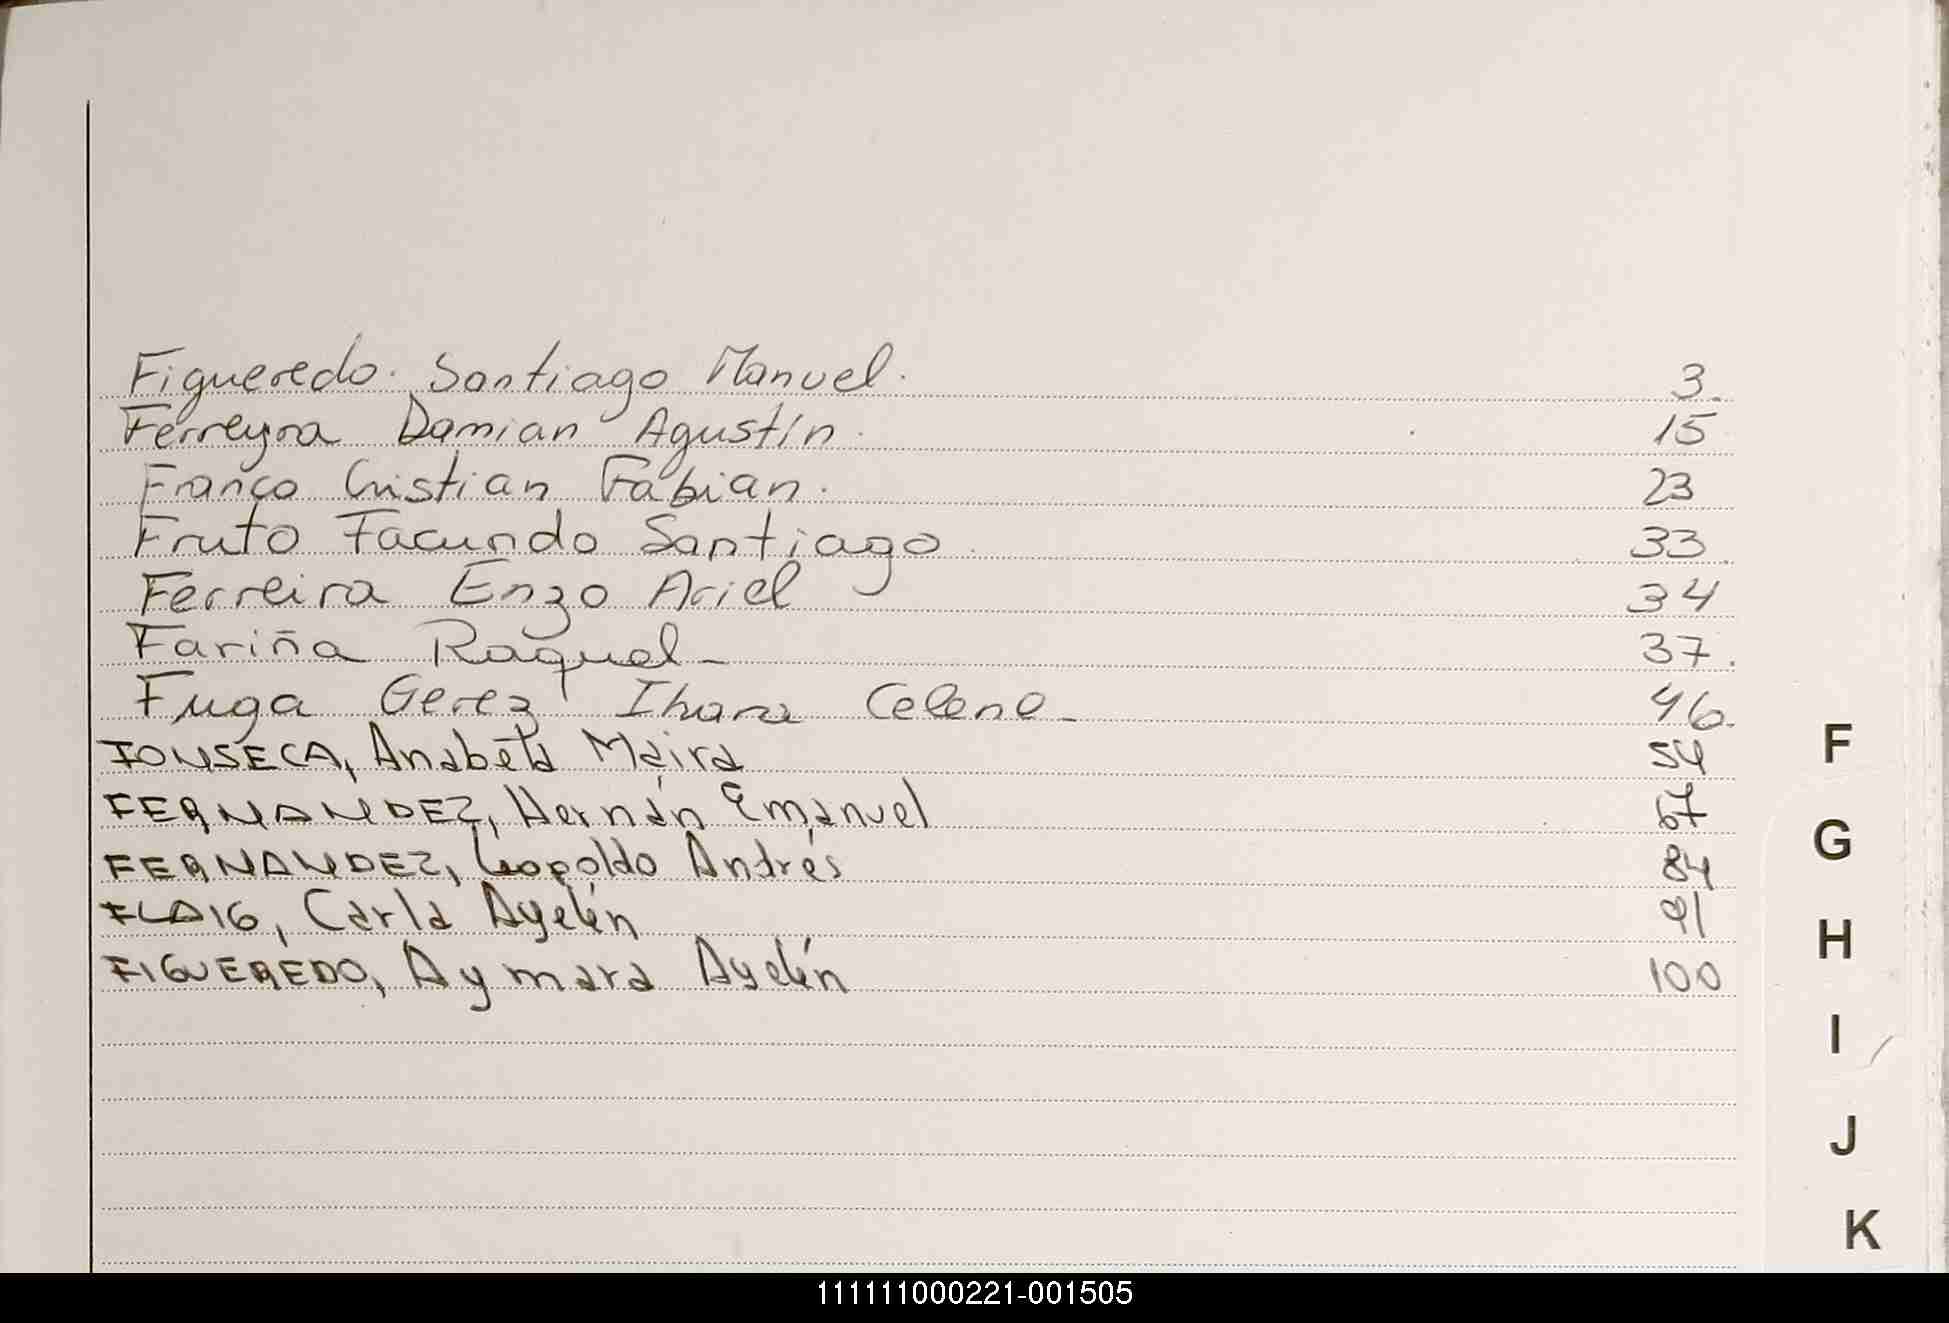 Figueredo. Santiago Manuel. 3.
Ferreyra Damian Agustín. 15
Franco Cristian Fabian. 23
Fruto Facundo Santiago. 33.
Ferreira Enzo Ariel 34
Fariña Raquel - 37.
Fuga Gerez Ihara Celene - 46.
FONSECA, Anabela Maira 54
FERNANDEZ, Hernán Emanuel 67
FERNANDEZ, Leopoldo Andrés 84
FLAIG, Carla Ayelén 91
FIGUEREDO, Aymara Ayelén 100
F
G
H
I
J
K
111111000221-001505